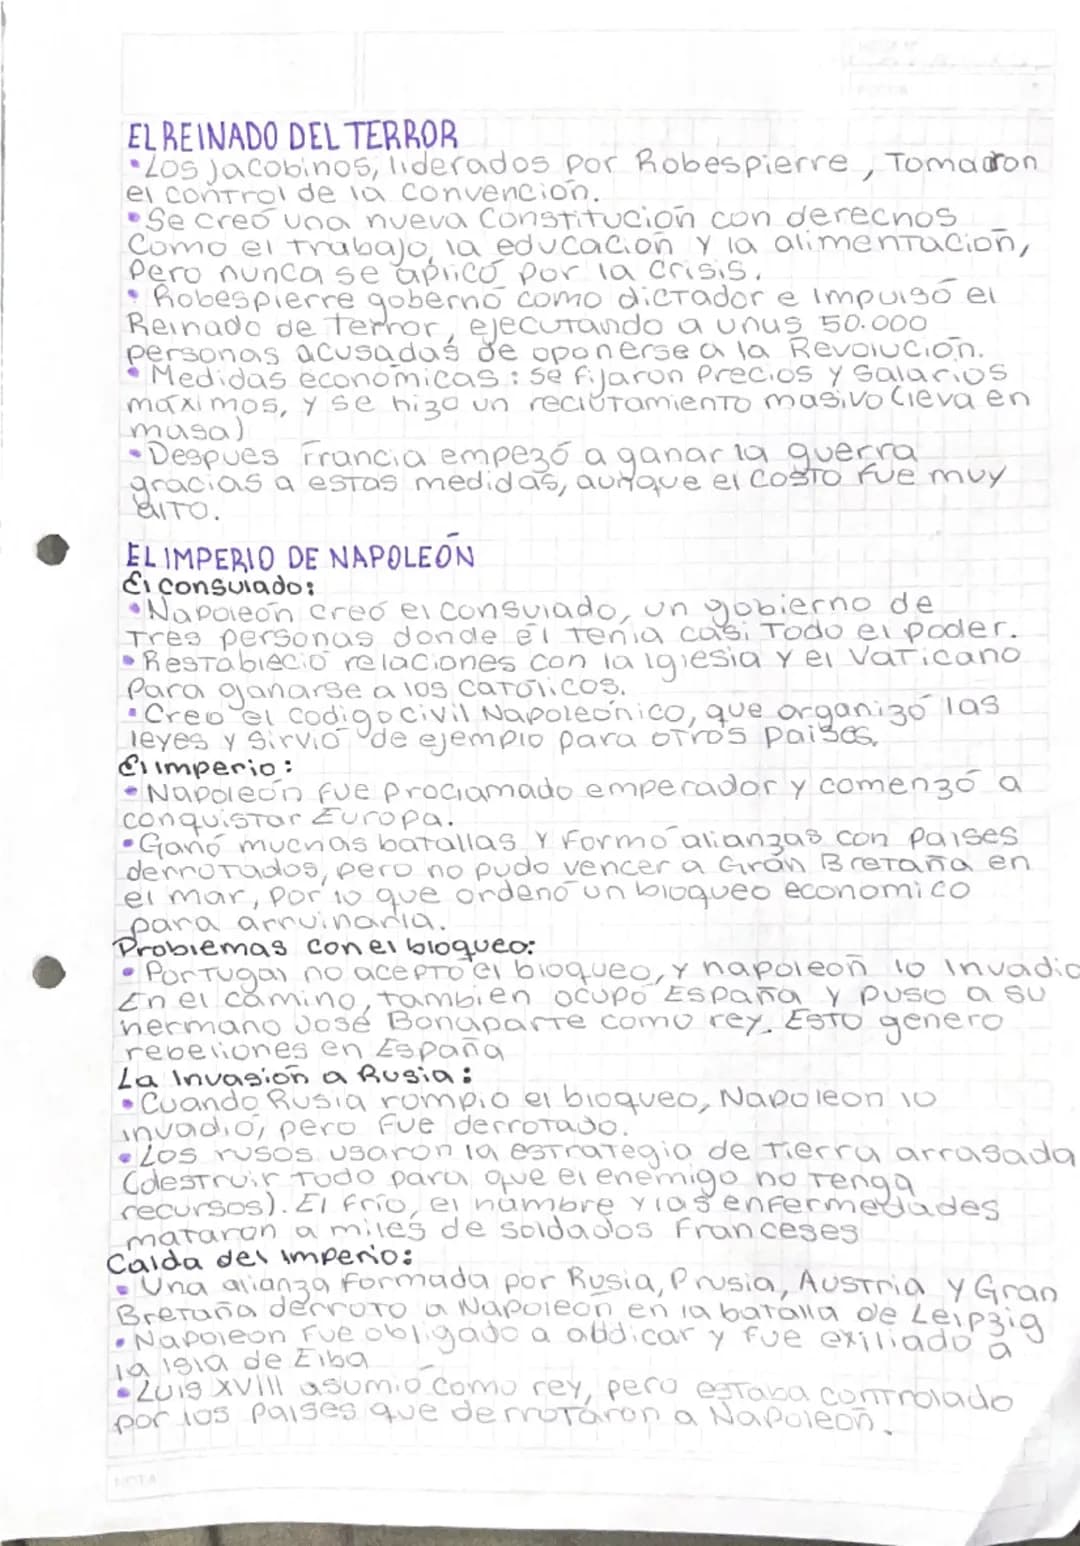 EL REINADO DEL TERROR
•Los Jacobinos, liderados por Robespierre, Tomaron
el control de la Convención.
•Se creó una nueva Constitución con derechos
Como el trabajo, la educación y la alimentación,
Pero nunca se aplicó por la crisis.
•Robespierre gobernó como dictador e impulsó el
Reinado de terror, ejecutando a unus 50.000
personas acusadas de oponerse a la Revolución.
•Medidas económicas: se fijaron Precios y salarios
máximos, y se hizo un reclutamiento masivo (leva en
masa)
•Despues Francia empezó a ganar la guerra
gracias a estas medidas, aunque el costo fue muy
alto.
EL IMPERIO DE NAPOLEÓN
El Consulado:
•Napoleón creó el consulado, un gobierno de
Tres personas donde él tenia casi Todo el poder.
•Restableció relaciones con la iglesia y el Vaticano
Para ganarse a los católicos.
•Creo el codigo civil Napoleónico, que organizó las
leyes y sirvió de ejemplo para otros paises.
El imperio:
•Napoleón fue proclamado emperador y comenzó a
conquistar Europa.
•Ganó muchas batallas y formó alianzas con paises
derrotados, pero no pudo vencer a Gran Bretaña en
el mar, por lo que ordenó un bloqueo economico
para arruinarla.
Problemas con el bloqueo:
•Portugal no acepto el bloqueo, y napoleon lo invadio
En el camino, tambien ocupó España y puso a su
hermano José Bonaparte como rey. Esto genero
rebeliones en España
La Invasión a Rusia:
•Cuando Rusia rompio el bloqueo, Napoleon lo
invadió, pero fue derrotado.
•Los rusos usaron la estrategia de tierra arrasada
(destruir todo para que el enemigo no tenga
recursos). El frío, el hambre y las enfermedades
mataron a miles de soldados franceses
Caida del imperio:
•Una alianza formada por Rusia, Prusia, Austria y Gran
Bretaña derroto a Napoleon en la batalla de Leipzig
•Napoleon fue obligado a abdicar y fue exiliado a
la isla de Elba
•Luis XVIII asumió como rey, pero estaba controlado
por los paises que derrotaron a Napoleón.
NOTA